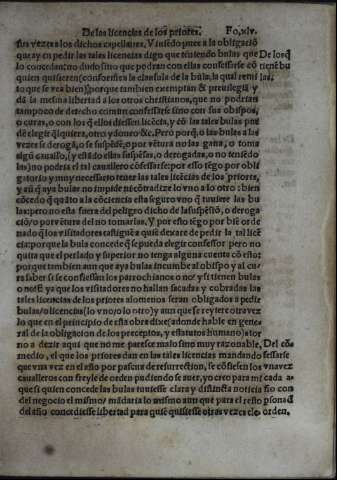 De las licencias de los priores. Fo.xlv.
sus vezes a los dichos capellanes. Viniẽdo pues a la obligaciõ
que ay en pedir las tales licencias digo que teniendo bulas que
lo concedan: no dudo sino que podran con ellas confessarse cõ
quien quisieren (conforme a la clausula de la bula, la qual remi
to que se vea bien) porque tambien exemptan & preuilegiã y
dã la mesma libertad a los otros christianos, que no podrian
tampoco de derecho comun confessarse sino con sus obispos,
o curas, o con los q̃ ellos diessen licẽcia, y cõ las tales bulas pue
dẽ elegir q̃lquiera, otro ydoneo &c. Pero porq̃, o las bulas a las
vezes se derogã, o se suspẽdẽ, o por vẽtura no las gana, o toma
algũ cauallo, (y estãdo ellas suspẽsas, o derogadas, o no teniẽdo
las) no podria el tal cauallero cõfessarse: por esso tẽgo por obli
gatorio y muy necessario tener las tales licẽcias de los priores,
y aũ q̃ aya bulas no impide ni cõtradize lo vno a lo otro: bien
cõcedo q̃ quãto a la cõciencia esta seguro vno q̃ tuuiere las bu
las: pero no esta fuera del peligro dicho de la suspẽsiõ, o deroga
ciõ, o por vẽtura del no tomarlas. Y por esto tẽgo por biẽ or de
nado q̃ los visitadores castiguẽ a quiẽ dexare de pedir la tal licẽ
cia: porque la bula concede q̃ se pueda elegir confessor pero no
quita que el perlado y superior no tenga alguna cuenta cõ esto:
porque tambien aun que aya bulas incumbe al obispo y al cu
ra saber si se confiessan los parrochianos o no: y si tienen bulas
o no: Assi ya que los visitadores no hallan sacadas y cobradas las
tales licencias de los priores alomenos seran obligados a pedir
bulas/o licencias (lo vno/o lo otro) y aun que se reytere otra vez
lo que en el principio de esta obra dixe (adonde hable en gene
ral de la obligacion de los preceptos, y estatutos humano) torno
a dezir aqui que no me parece malo sino muy razonable,
medio, el que los priores dan en las tales licencias mandando
que vna vez en el año por pascua de resurrection, se cõfiessen los
caualleros con freyle de orden pudiendo se auer, yo creo para mi
que si quien concede las bulas tuuiesse clara y distincta noticia
del negocio el mismo/ mãdaria lo mismo aun que para el resto
del año concediesse libertad para que quisiesse otras vezes ele
De los q̃
tienẽ bu
las.
Del cõ
fessarse
vna vez
cada a
ño con
psona d̃
orden.